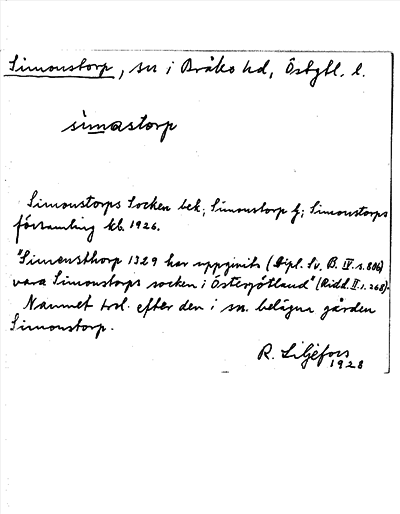 Simonstorp, sn i Bråbo hd, Östgtl. l.
simastorp
Simonstorps Socken bek; Simonstorp f; Simonstorps
församling kb. 1926.
"Simensthorp 1329 har uppgivits (Dipl. Sv. B. IV. s. 806)
vara Simonstorps socken i Östergötland" (Ridd. II s. 268).
Namnet trol. efter den i sn. belägna gården
Simonstorp.
R. Liljefors
1928